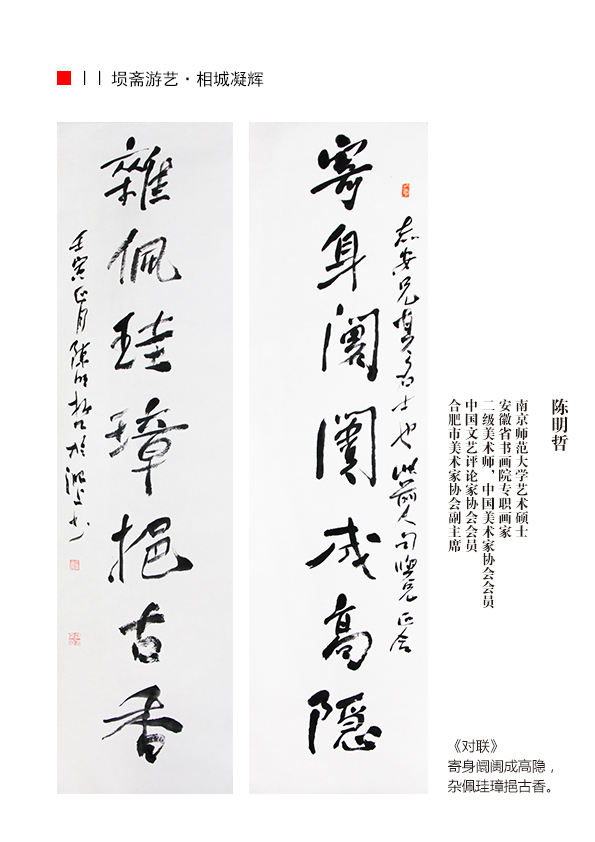 11 埙斋游艺·相城凝辉
寄身闤闠成高隱
志安兄真高士也 前人句 兄正
雜佩珪璋挹古香
壬寅正月陳明哲於淝上
陈明哲
南京师范大学艺术硕士
安徽省书画院专职画家
二级美术师、中国美术家协会会员
中国文艺评论家协会会员
合肥市美术家协会副主席
《对联》
寄身阛阓成高隐，
杂佩珪璋挹古香。